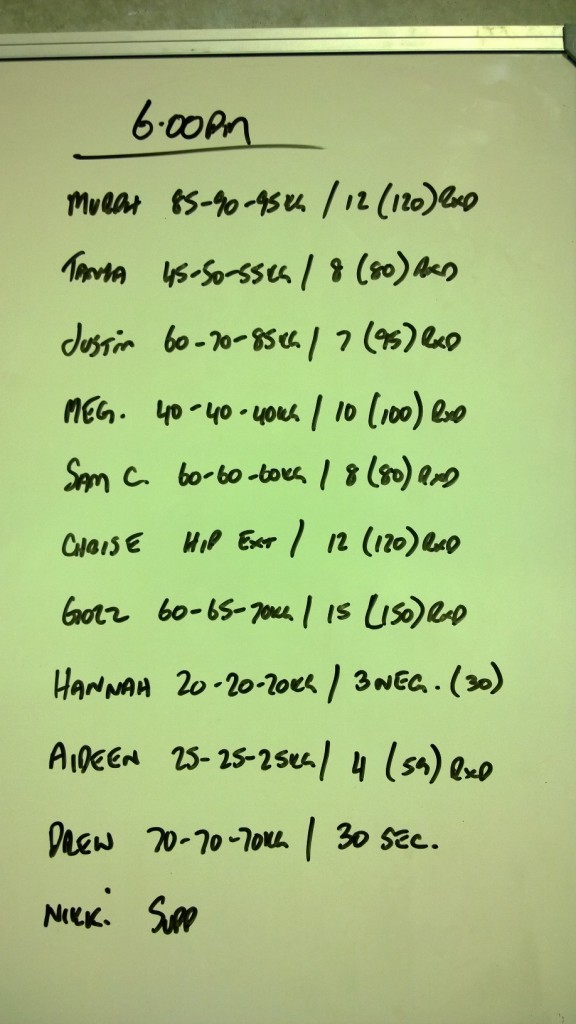 6.00PM
MURRAY 85-90-95KG / 12 (120) RxD
TANYA 45-50-55KG / 8 (80) RxD
JUSTIN 60-70-85KG / 7 (95) RxD
MEG. 40-40-40KG / 10 (100) RxD
SAM C. 60-60-60KG / 8 (80) RxD
HIP EXT / 12 (120) RxD
60-65-70KG / 15 (150) RxD
HANNAH 20-20-20KG / 3 NEG. (30)
AIDEEN 25-25-25KG / 4 (59) RxD
DREW 70-70-70KG / 30 SEC.
NIKKI SUPP